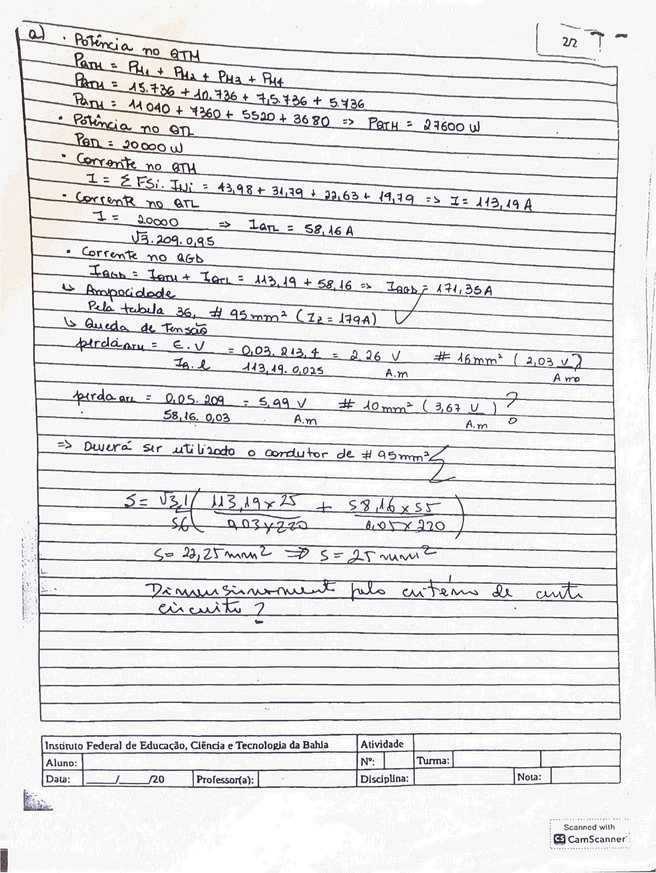 2/2
a) • Potência no QTM
PQTM = PM1 + PM2 + PM3 + PM4
PQTM = 15.736 + 10.736 + 7,5.736 + 5.736
PQTM = 11040 + 7360 + 5520 + 3680 => PQTM = 27600 W
• Potência no QTL
PQTL = 20000 W
• Corrente no QTM
I = Σ FSi. INi = 43,98 + 31,79 + 22,63 + 14,79 => I = 113,19 A
• Corrente no QTL
I = 20000 / √3.209.0,95 => IQTL = 58,16 A
• Corrente no QGD
IQGD = IQTM + IQTL = 113,19 + 58,16 => IQGD = 171,35 A
↳ Ampacidade
Pela tabela 36, # 95mm² (Iz = 179A) ✓
↳ Queda de Tensão
perdaQTM = E.V / IQ.l = 0,03.213,4 / 113,19.0,025 = 2,26 V / A.m # 16mm² (2,03 V / A.m)
perdaQTL = 0,05.209 / 58,16.0,03 = 5,99 V / A.m # 10mm² (3,67 V / A.m) ?
=> Deverá ser utilizado o condutor de # 95mm²
S = √3.1 / 56 ( 113,19 x 25 / 0,03 x 220 + 58,16 x 55 / 0,05 x 220 )
S = 22,25 mm² => S = 25 mm²
Dimensionament pelo critério de curto
circuito ?
Instituto Federal de Educação, Ciência e Tecnologia da Bahia Atividade
Aluno: Nº: Turma:
Data: ____/____/20 Professor(a): Disciplina: Nota:
Scanned with
CS CamScanner